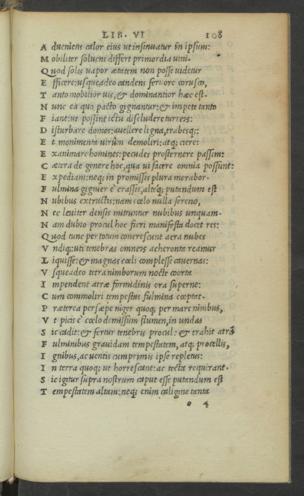 LIB. VI 108
A dueniens calor eius ut insinuatur in ipsum:
M obiliter soluens differt primordia uini.
Q uod solis uapor ætatem non posse uidetur
E fficere: usqueadeo candens feruore corusco,
T anto mobilior uis, & dominantior hæc est.
N unc ea quo pacto gignantur: & impete tanto
F iant: ut possint ictu discludere turreis:
D isturbare domos: auellere ligna, trabesq;:
E t monimenta uirûm demoliri: atq; ciere:
E xanimare homines: pecudes prosternere passim:
C ætera de genere hoc, qua ui facere omnia possunt:
E xpediam: neq; in promissis plura morabor.
F ulmina gignier è crassis, alteq; putandum est
N ubibus extructis: nam cœlo nulla sereno,
N ec leuiter densis mittuntur nubibus unquam.
N am dubio procul hoc fieri manifesta docet res:
Q uod tunc per totum concrescunt aera nubes
V ndiq; uti tenebras omneis acheronte reamur
L iquisse: & magnas cœli complesse cauernas:
V squeadeo tetra nimborum nocte coorta
I mpendent atræ formidinis ora superne:
C um commoliri tempestas fulmina cœptet.
P ræterea persæpe niger quoq; per mare nimbus,
V t picis è cœlo demissum flumen, in undas
S ic cadit: & fertur tenebris procul: & trahit atrã
F ulminibus grauidam tempestatem, atq; procellis,
I gnibus, ac uentis cumprimis ipse repletus:
I n terra quoq; ut horrescant: ac tecta requirant.
S ic igitur supra nostrum caput esse putandum est
T empestatem altam: neq; enim caligine tanta
o 4